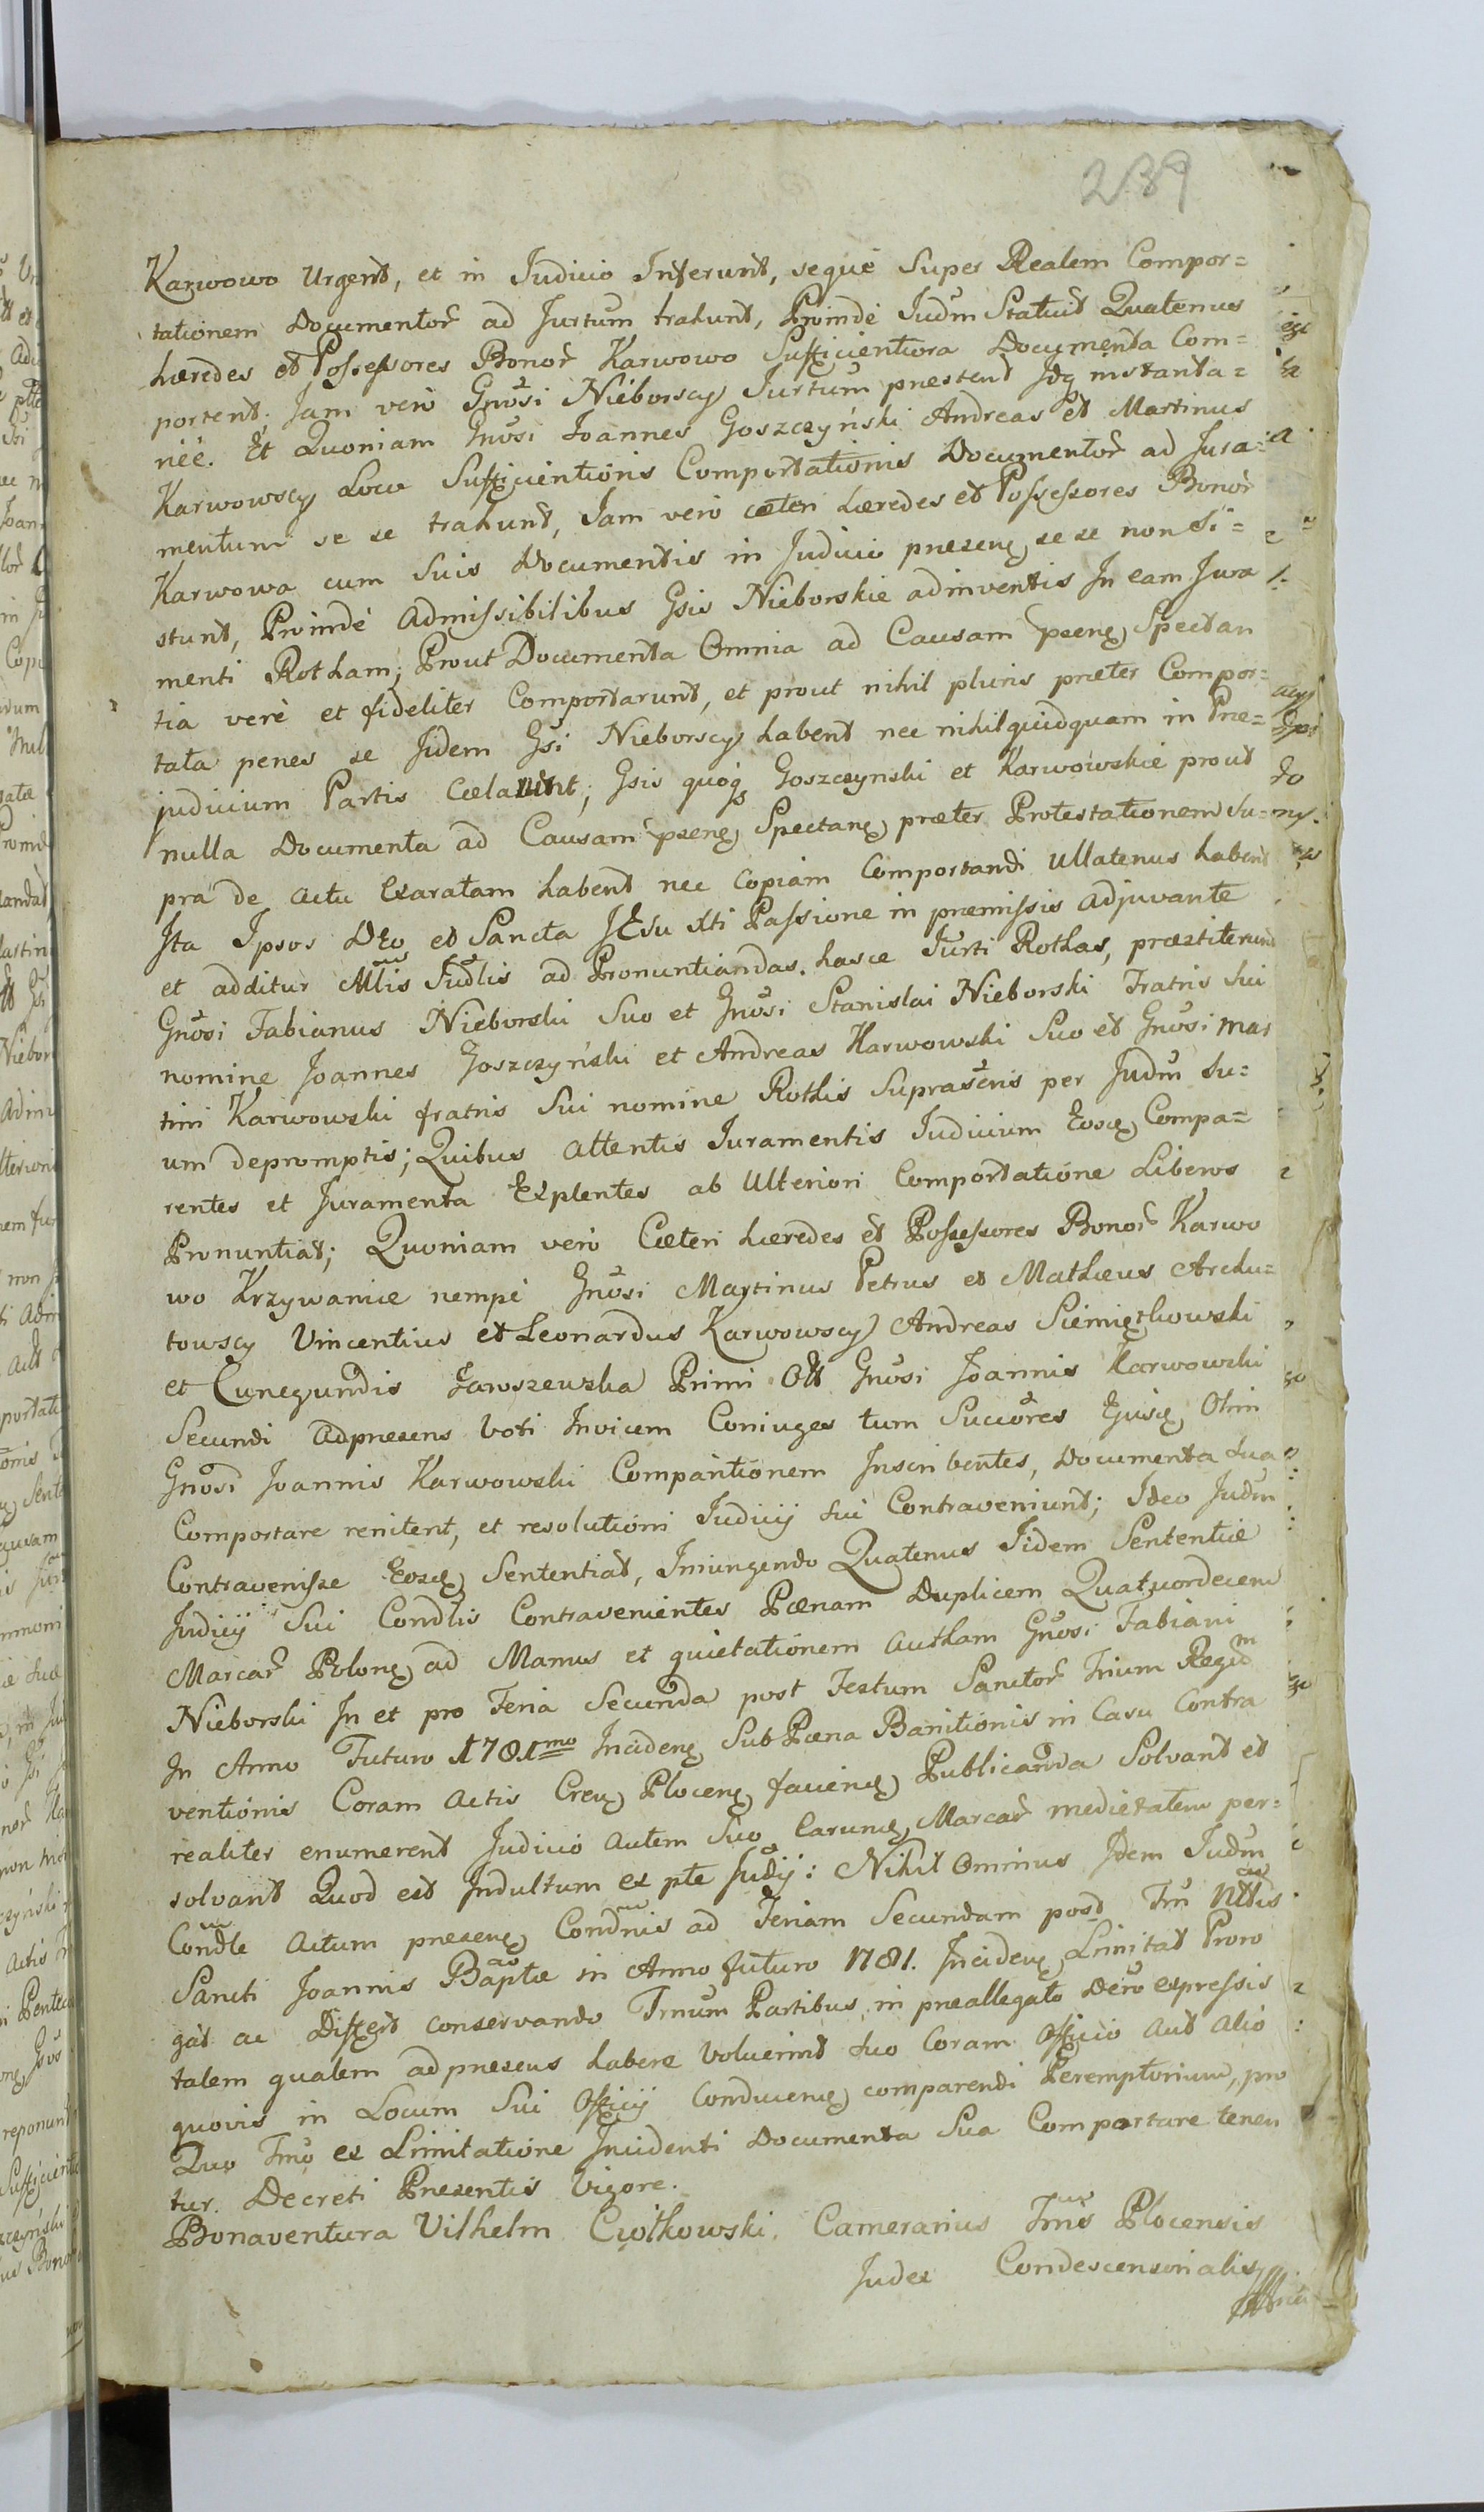 239
Karwowo Urgent, et in Judicio Inferunt, seque Super Realem Compor=
tationem Documentor̃ ad Jurtum trahunt, Proinde Judm̃ Statuit Quatenus
hæredes et Possessores Bonor̃ Karwowo Sufficientiora Documenta Com=
portent; Jam vero Gnŏsi Nieborscy Jurtum̃ præstent Idq̨ instanta=
neè. Et Quoniam Gnŏsi Joannes Goszczyński Andreas et Martinus
Karwowscy Loco Sufficientioris Comportationis Documentor̃ ad Jura=
mentum se se trahunt, Jam vero cæteri hæredes et Possessores Bonor̃
Karwowa cum Suis Documentis in Judicio præsenę se se non Si=
stunt, Proinde Admissibilibus Gsis Nieborskie adinventis In eam Jura
menti Rotham; Prout Documenta Omnia ad Causam p̃senę Spectan
tia verè et fideliter Comportarunt, et prout nihil pluris præter Compor=
tata penes se Iidem Gsi Nieborscy habent nec nihil quidquam in Præ=
judicium Partis Cœlarunt; Gsis quoq̨ Goszczynski et Karwowskie prout
nulla Documenta ad Causam p̃senę Spectanę præter Protestationem Su=
pra de actu Exaratam habent nec Copiam Comportandi ullatenus habent
Ita Ipsos DEo et Sancta JEsu Xti Passione in præmissis adjuvante
et additur Mlis Judlis ad Pronuntiandas hasce Jurti Rothas, præstiterunt
Gnŏsi Fabianus Nieborski Suo et Gnŏsi Stanislai Nieborski Fratris Sui
nomine Joannes Goszczyński et Andreas Karwowski Suo et Gnŏsi Mar
tini Karwowski fratris Sui nomine Rothis Suprascris per Judm̃ Su=
um depromptis; Quibus attentis Juramentis Judicium Eosdę Compa=
rentes et Juramenta Explentes ab Ulteriori Comportatione Liberos
Pronuntiat; Quoniam vero Cæteri hæredes et Possessores Bonor̃ Karwo
wo Krzywanice nempè Gnŏsi Martinus Petrus et Mathæus Archu=
towscy Vincentius et Leonardus Karwowscy Andreas Siemiątkowski
et Cunegundis Jaroszewska Primi Ott Gnŏsi Joannis Karwowski
Secundi adpræsens Voti Invicem Coniuges tum Succŏres Ejusdę Olim
Gnŏsi Joannis Karwowski Comparitionem Inscribentes, Documenta Sua
Comportare renitent, et resolutioni Judicij Sui Contraveniunt; Ideo Judm̃
Contravenisse Eosdę Sententiat, Iniungendo Quatenus Iidem Sententiæ
Judicij Sui Condlis Contravenientes Pœnam Duplicem Quatuordecem
Marcar̃ Polonę ad Manus et quietationem Autham Gnŏsi Fabiani
Nieborski In et pro Feria Secunda post Festum Sanctor̃ Trium Regum
In Anno Futuro 1781mo Incidenę Sub Pœna Banitionis in Casu Contra
ventionis Coram Actis Cren̨ Plocenę faciendę Publicanda Solvant et
realiter enumerent Judicio autem Suo Earundę Marcar̃ medietatem per=
solvant Quod est Indultum ex pte Judij: Nihil Ominus Idem Judm̃
Condle Actum præsenę Condnis ad Feriam Secundam post Fm̃ Nttis
Sancti Joannis Baptæ in Anno futuro 1781. Incidenę Limitat Proro
gat ac Differt conservando Trnum Partibus in præallegato Dero expressis
talem qualem adpræsens habere Voluerint Suo Coram Officio aut alio
quovis in Locum Sui Officij Conducendę comparendi Peremptorium, pro
Quo Trno ex Limitatione Incidenti Documenta Sua Comportare tenen
tur. Decreti Præsentis Vigore.
Bonaventura Vilhelm Ciółkowski. Camerarius Trris Plocensis
Judex Condescensorialis